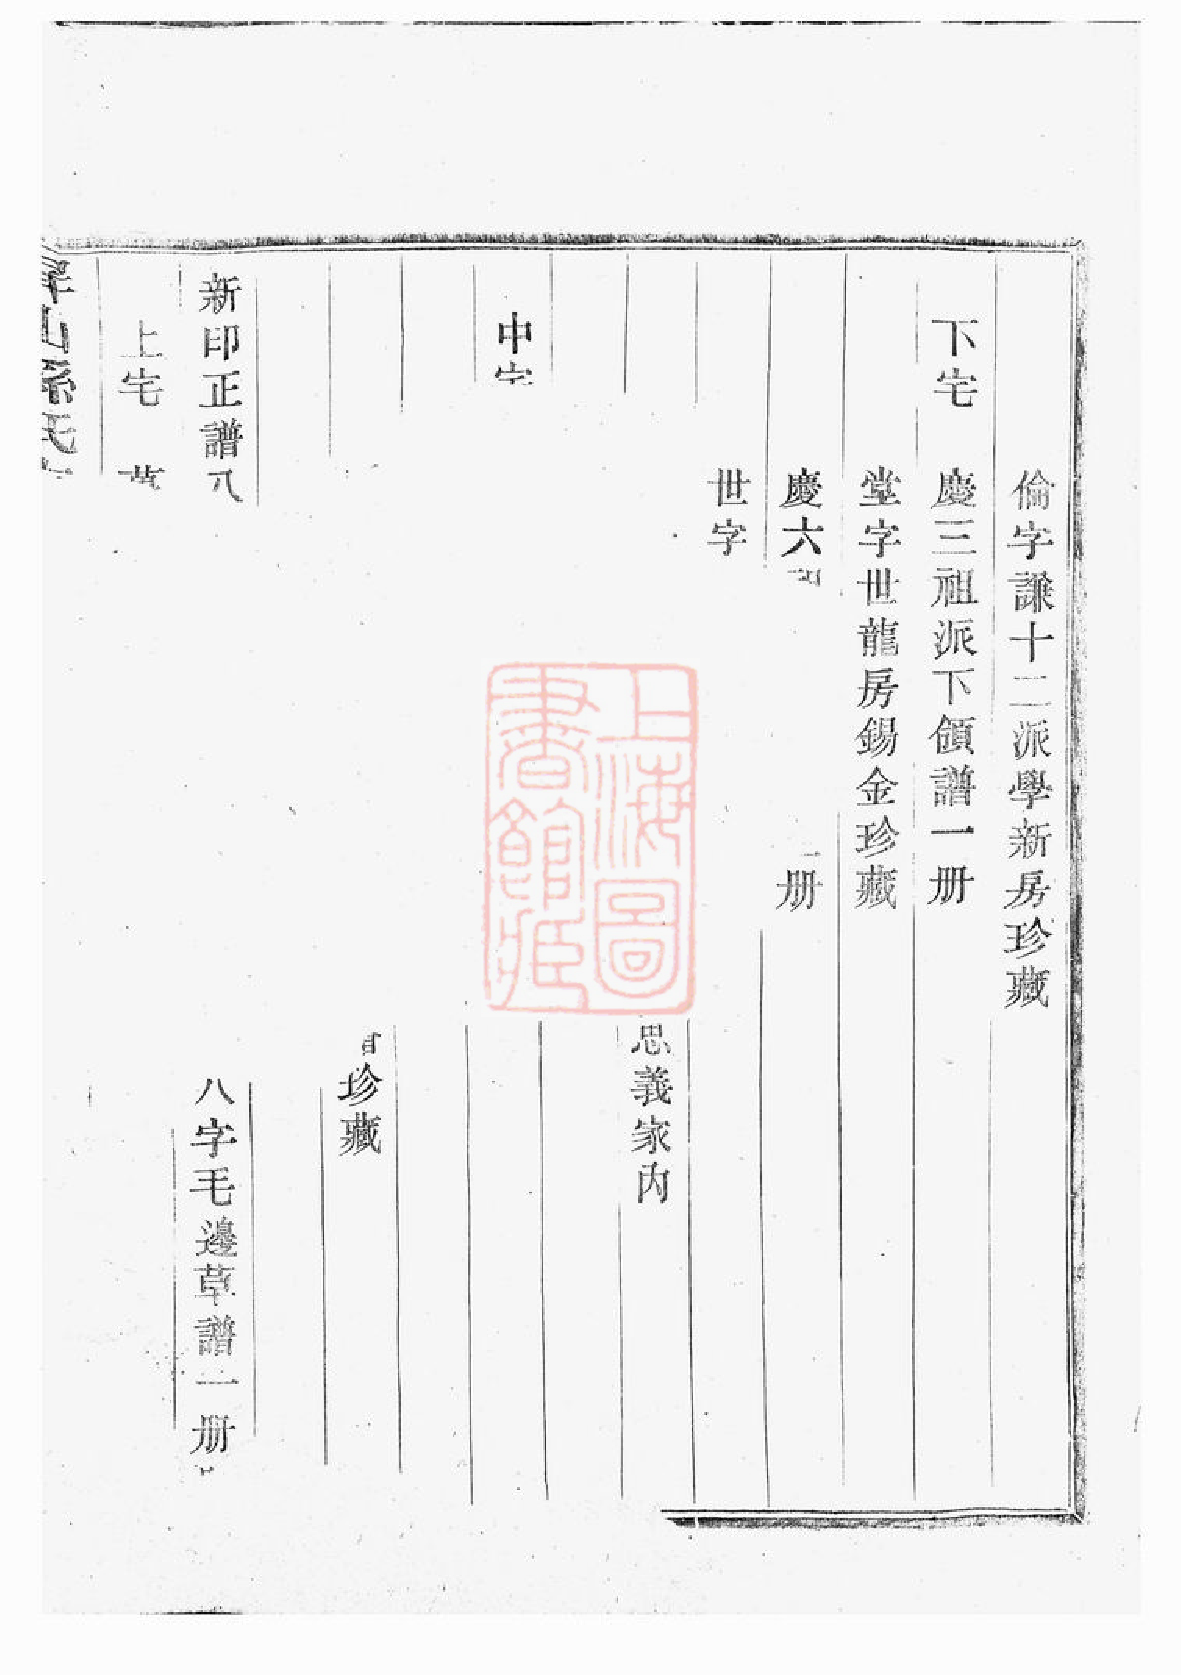 倫字謙十二派學新房珍藏
下宅 慶三祖派下領譜一册
堂字世龍房錫金珍藏
慶六 册
世字
思義家內
中宅
珍藏
新印正譜 八字毛邊草譜一册
上宅
孫氏
上海圖書館藏